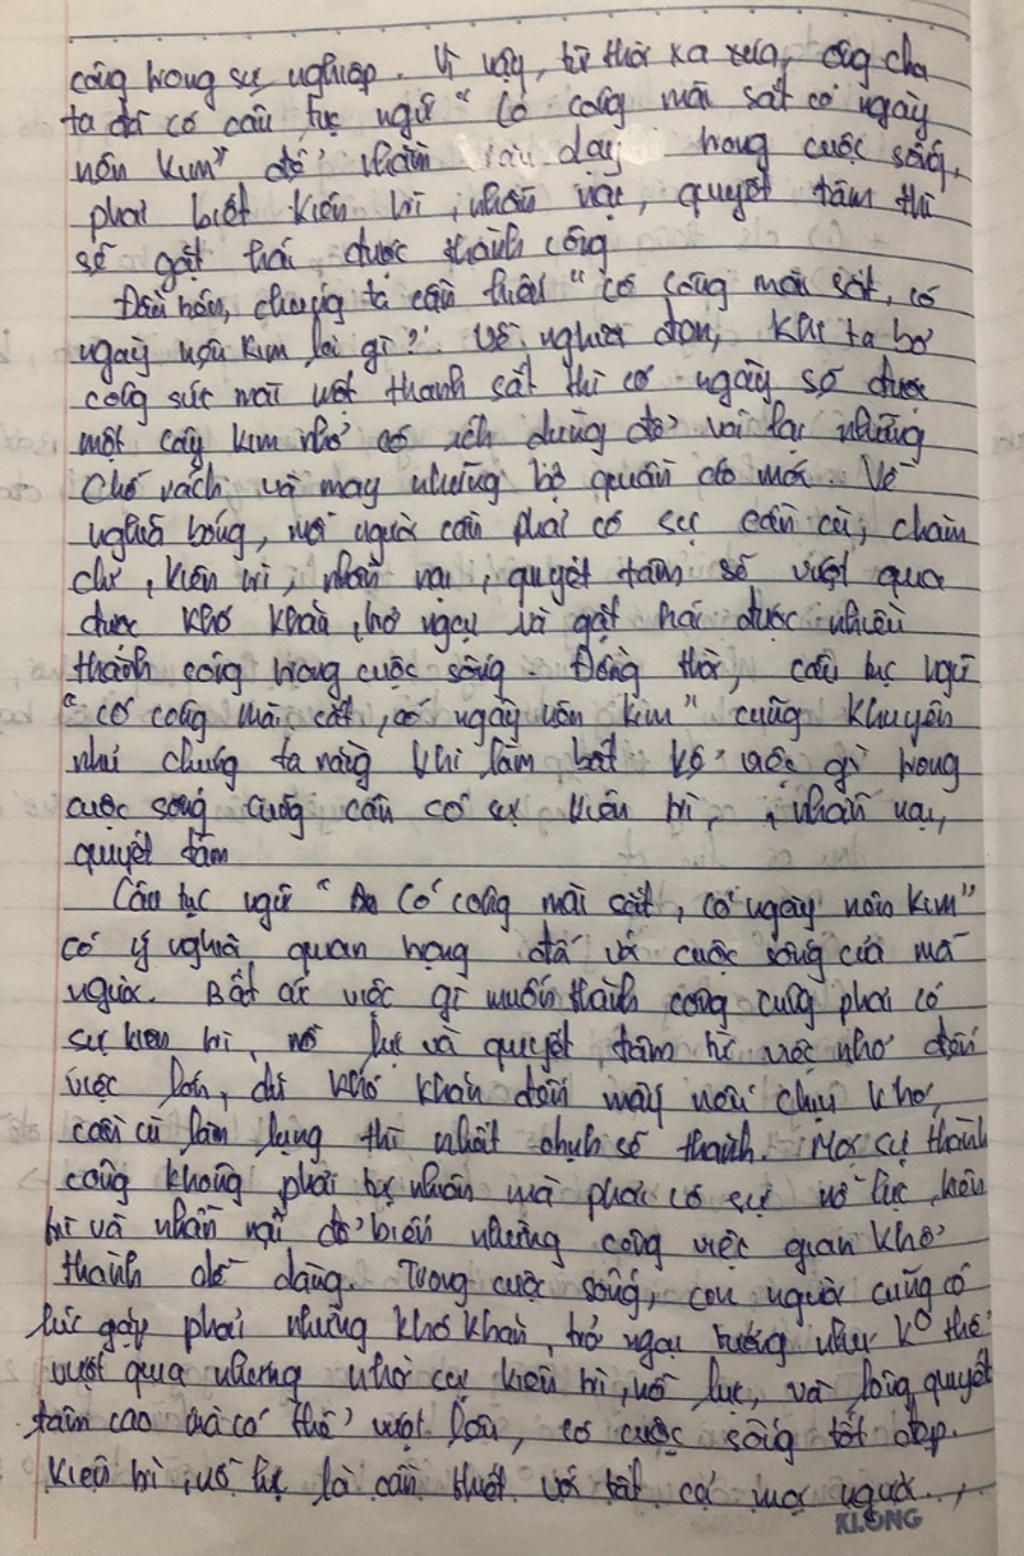 công trong sự nghiệp. Vì vậy, từ thời xa xưa, ông cha
ta đã có câu tục ngữ "Có công mài sắt có ngày
nên kim" để nhằm răn dạy trong cuộc sống,
phải biết kiên trì, nhẫn nại, quyết tâm thì
sẽ gặt hái được thành công
Đầu tiên, chúng ta cần hiểu "có công mài sắt, có
ngày nên kim là gì?". Về nghĩa đen, khi ta bỏ
công sức mài một thanh sắt thì có ngày sẽ được
một cây kim nhỏ có ích dùng để vá lại những
chỗ rách và may những bộ quần áo mới. Về
nghĩa bóng, mỗi người cần phải có sự cần cù, chăm
chỉ, kiên trì, nhẫn nại, quyết tâm sẽ vượt qua
được khó khăn, trở ngại và gặt hái được nhiều
thành công trong cuộc sống. Đồng thời, câu tục ngữ
"có công mài sắt, có ngày nên kim" cũng khuyên
nhủ chúng ta rằng khi làm bất kỳ việc gì trong
cuộc sống cũng cần có sự kiên trì, nhẫn nại,
quyết tâm
Câu tục ngữ "Có công mài sắt, có ngày nên kim"
có ý nghĩa quan trọng đối với cuộc sống của mỗi
người. Bất cứ việc gì muốn thành công cũng phải có
sự kiên trì, nỗ lực và quyết tâm từ việc nhỏ đến
việc lớn, dù khó khăn đến mấy nếu chịu khó,
cần cù làm lụng thì nhất định sẽ thành. Mọi sự thành
công không phải tự nhiên mà phải có sự nỗ lực, kiên
trì và nhẫn nại để biến những công việc gian khổ
thành dễ dàng. Trong cuộc sống, con người cũng có
lúc gặp phải những khó khăn, trở ngại tưởng như k° thể
vượt qua nhưng nhờ sự kiên trì, nỗ lực, và lòng quyết
tâm cao mà có thể vượt lên, có cuộc sống tốt đẹp.
Kiên trì, nỗ lực là cần thiết với tất cả mọi người.,
KLONG